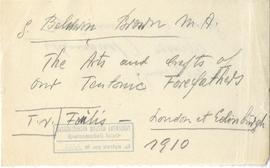 G Baldwin Brown M.A.
The Arts and Crafts of
our Teutonic Forefathers
T.N. Foulis — London et Edinburgh
1910